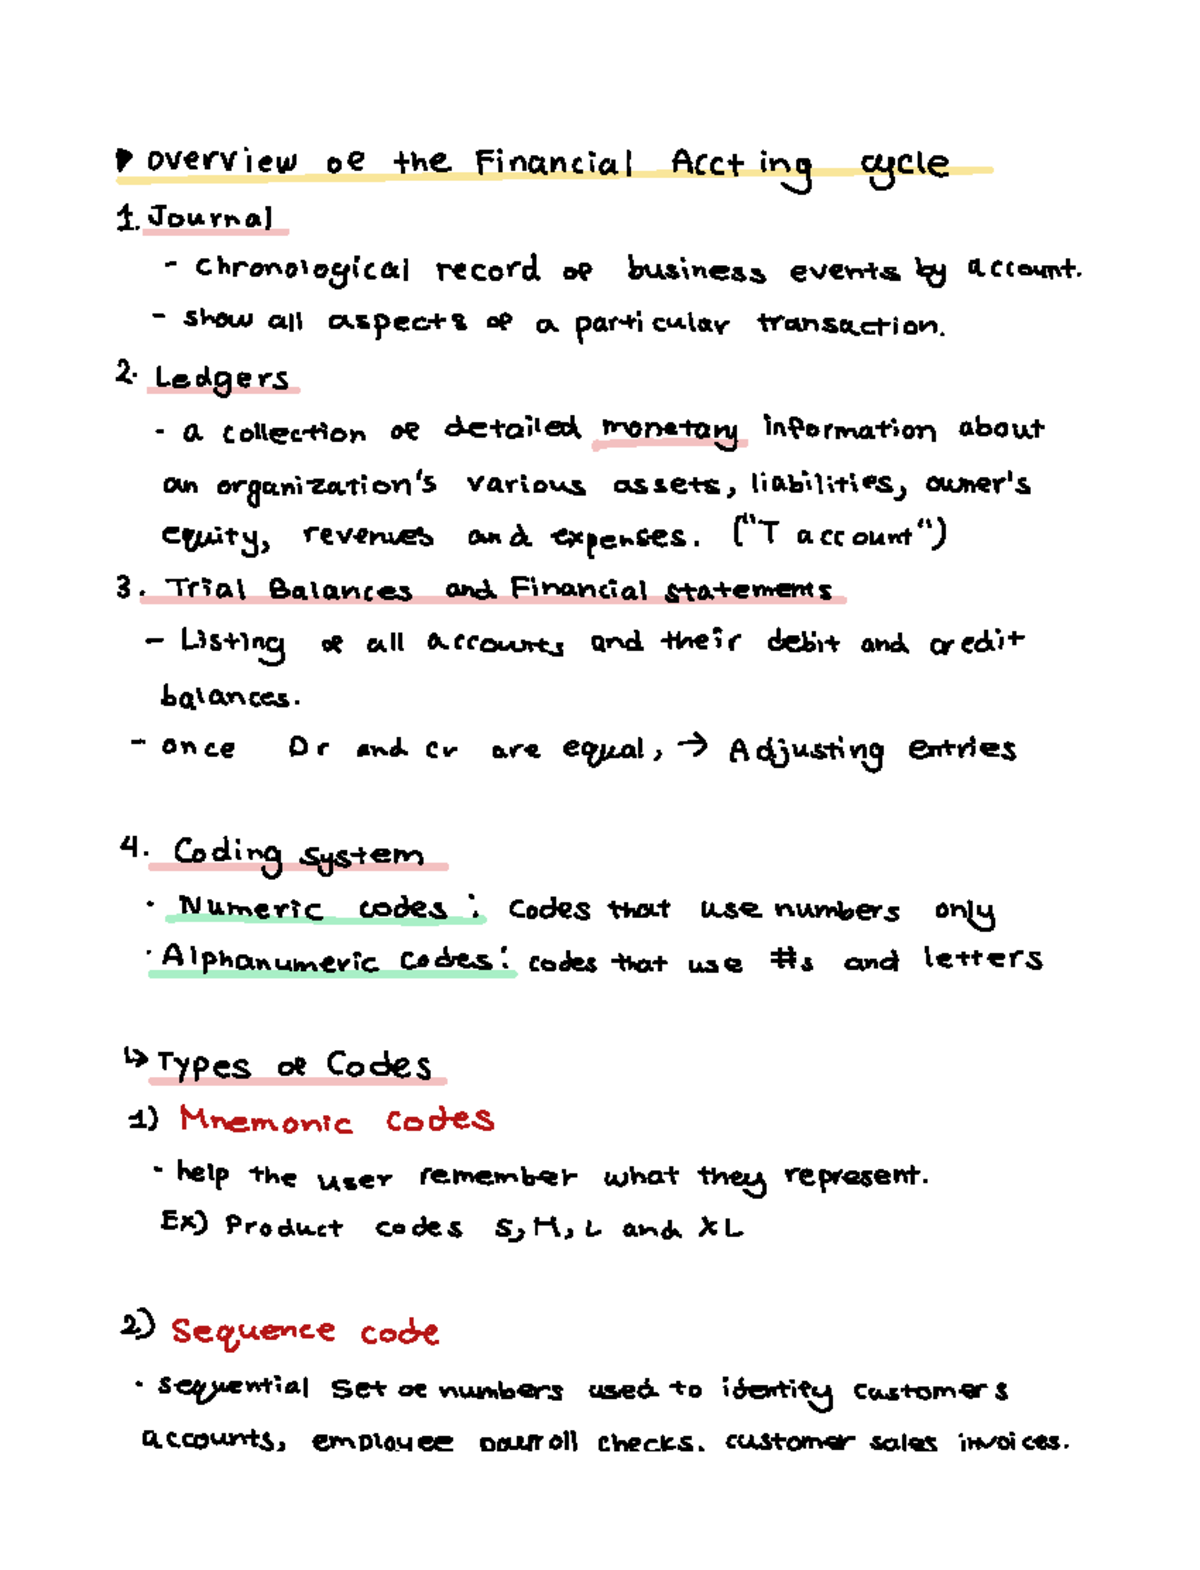 Overview of the Financial Accting cycle
1. Journal
- Chronological record of business events by account.
- show all aspects of a particular transaction.
2. Ledgers
- a collection of detailed monetary information about
an organization's various assets, liabilities, owner's
equity, revenues and expenses. ("T account")
3. Trial Balances and Financial statements
- Listing of all accounts and their debit and credit
balances.
- once Dr and Cr are equal, → Adjusting entries
4. Coding system
· Numeric codes : Codes that use numbers only
· Alphanumeric Codes : codes that use #s and letters
↳ Types of Codes
1) Mnemonic Codes
· help the user remember what they represent.
Ex) Product codes S, M, L and XL
2) Sequence code
· sequential set of numbers used to identify customers
accounts, employee payroll checks. customer sales invoices.